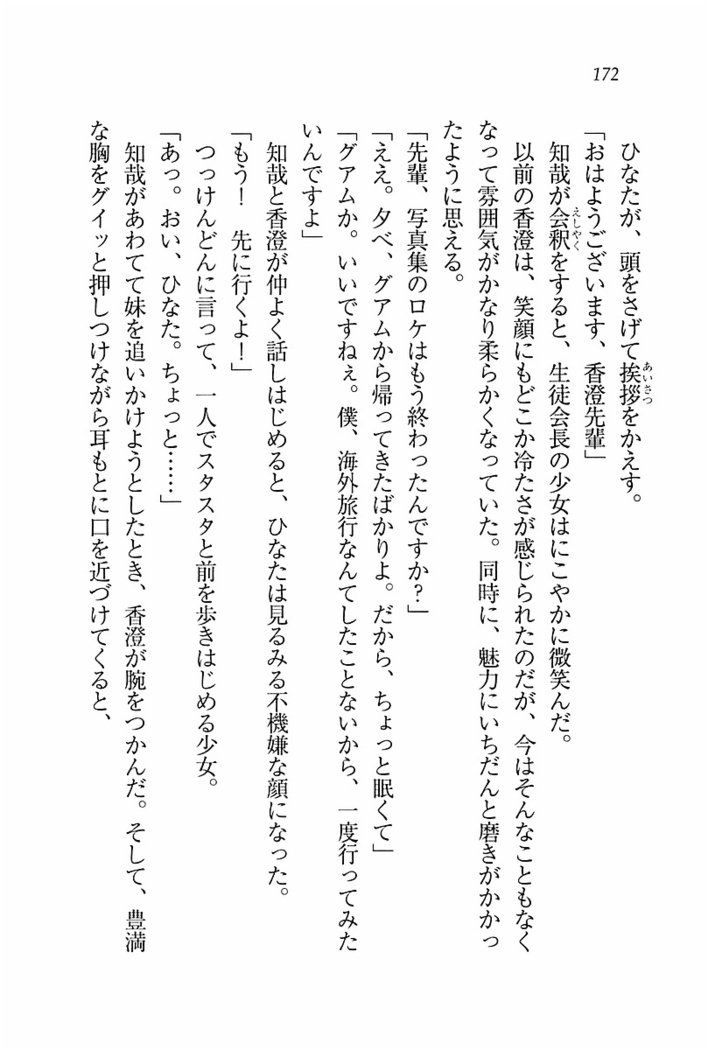 172
ひなたが、頭をさげて挨拶をかえす。
「おはようございます、香澄先輩」
知哉が会釈をすると、生徒会長の少女はにこやかに微笑んだ。
以前の香澄は、笑顔にもどこか冷たさが感じられたのだが、今はそんなこともなく
なって雰囲気がかなり柔らかくなっていた。同時に、魅力にいちだんと磨きがかかっ
たように思える。
「先輩、写真集のロケはもう終わったんですか?」
「ええ。夕べ、グアムから帰ってきたばかりよ。だから、ちょっと眠くて」
「グアムか。いいですねぇ。僕、海外旅行なんてしたことないから、一度行ってみた
いんですよ」
知哉と香澄が仲よく話しはじめると、ひなたは見るみる不機嫌な顔になった。
「もう! 先に行くよ!」
つっけんどんに言って、一人でスタスタと前を歩きはじめる少女。
「あっ。おい、ひなた。ちょっと……」
知哉があわてて妹を追いかけようとしたとき、香澄が腕をつかんだ。そして、豊満
な胸をグイッと押しつけながら耳もとに口を近づけてくると、